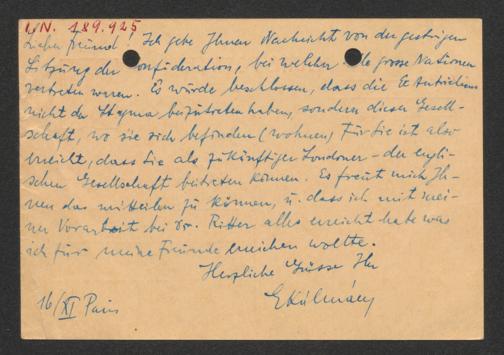 I/N. 189.925
Lieber Freund! Ich gebe Ihnen Nachricht von der gestrigen
Sitzung der Confúderation, bei welcher alle grosse Nationen
vertreten waren. Es wurde beschlossen, dass die Ex
nicht der Stagma beizutreten haben, sondern dieser Gesell-
schaft, wo sie sich befinden (wohnen) Für Sie ist also
erreicht, dass Sie als zukünftiger Londoner – der engli-
schen Gesellschaft beitreten können. Es freut mich Ih-
nen das mitteilen zu können, u. dass ich mit mei-
ner Vorarbeit bei Dr. Ritter alles erreicht habe was
ich für meine Freunde erreichen wollte.
Herzliche Grüsse Ihr
EKálmán
16/XI Paris